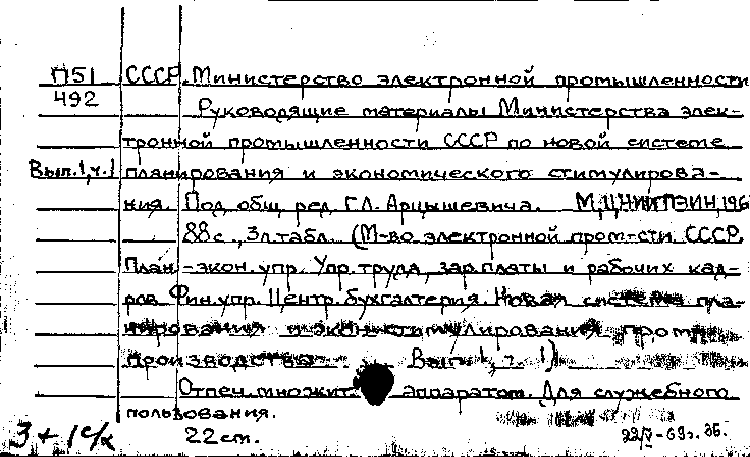 П51 СССР. Министерство электронной промышленности
492 Руководящие материалы Министерства элек-
тронной промышленности СССР по новой системе
Вып.1,ч.1 планирования и экономического стимулирова-
ния. Под общ. ред. Г.Л. Арцышевича. М., 196
88 с., 3 л. табл. (М-во электронной пром-сти СССР.
План.-экон. упр. Упр. труда, зарплаты и рабочих кад-
ров. Фин. упр. Центр. бухгалтерия. Новая система пла-
нирования и экон. стимулирования пром.
производства. Вып. 1, ч. 1)
Отпеч. множит. аппаратом. Для служебного
пользования.
3+1с/к 22см. 69г.